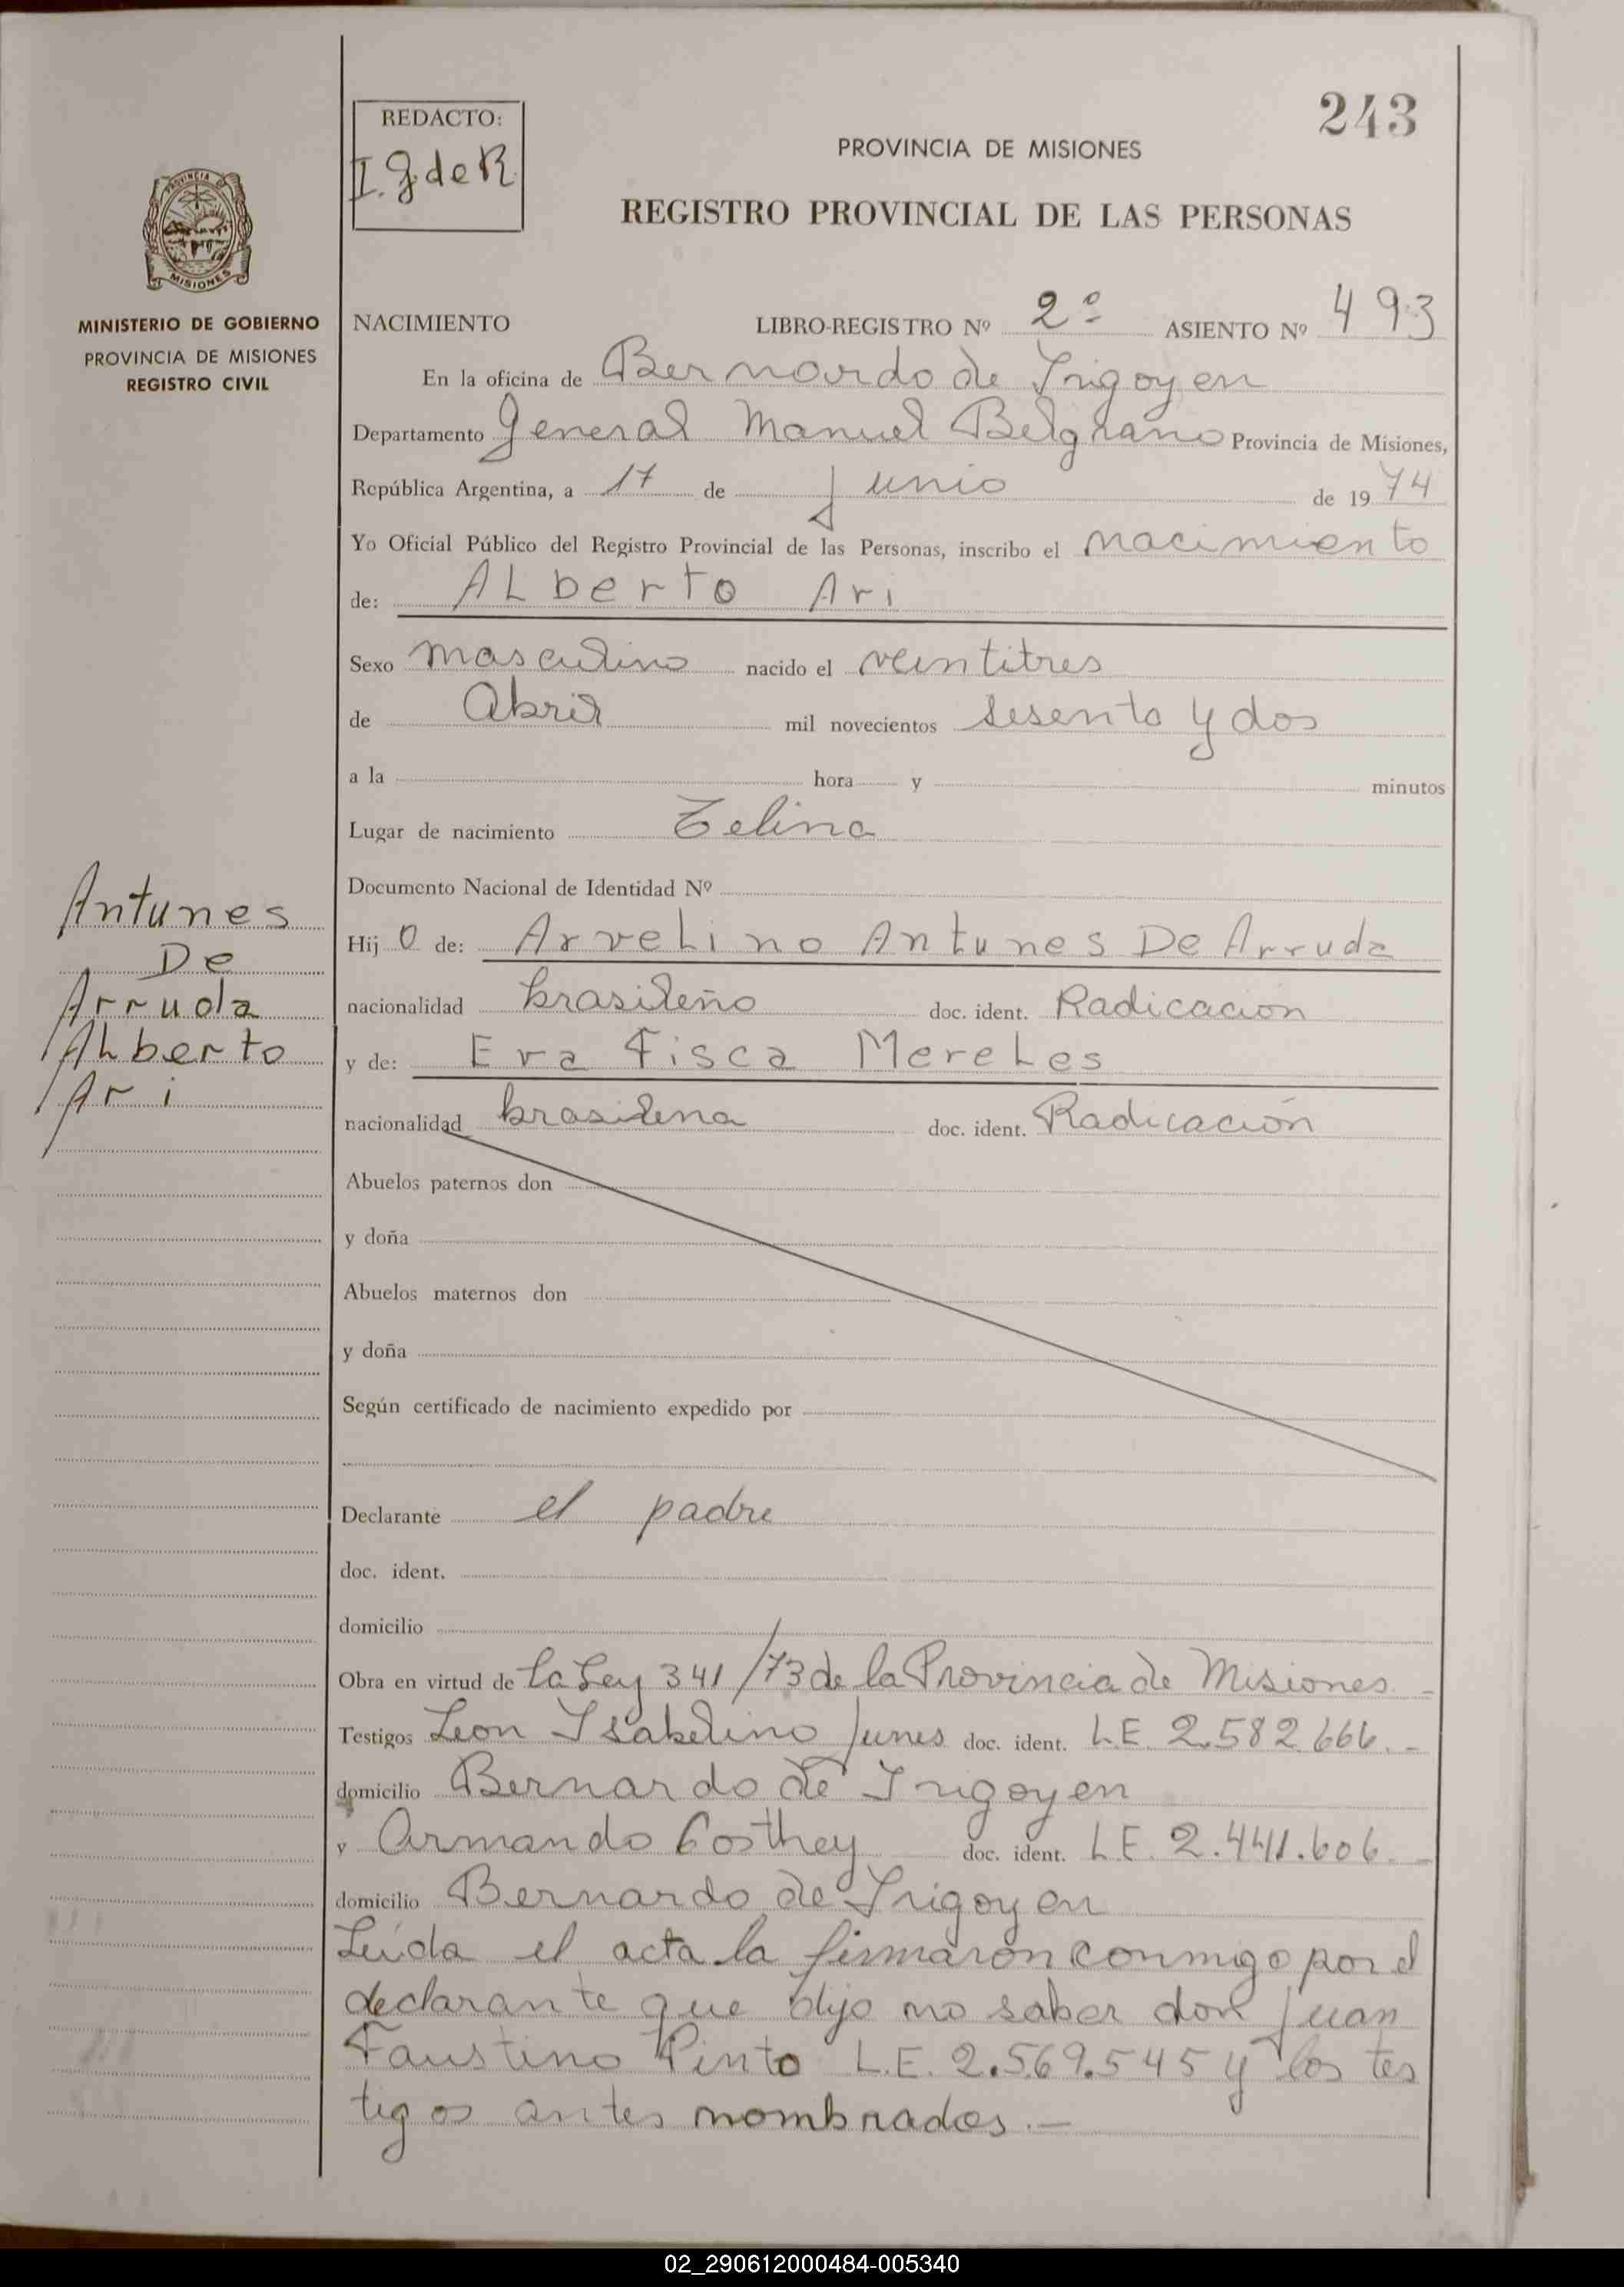 243
REDACTO:
I. G. de R.
PROVINCIA DE MISIONES
REGISTRO PROVINCIAL DE LAS PERSONAS
PROVINCIA DE
MISIONES
MINISTERIO DE GOBIERNO
PROVINCIA DE MISIONES
REGISTRO CIVIL
NACIMIENTO LIBRO-REGISTRO Nº 2º ASIENTO Nº 493
En la oficina de Bernardo de Irigoyen
Departamento General Manuel Belgrano Provincia de Misiones,
República Argentina, a 17 de Junio de 1974
Yo Oficial Público del Registro Provincial de las Personas, inscribo el nacimiento
de: ALberto Ari
Sexo masculino nacido el veintitres
de Abril mil novecientos sesenta y dos
a la hora y minutos
Lugar de nacimiento Zelina
Documento Nacional de Identidad Nº
Antunes
De
Arruda
ALberto
Ari
Hij o de: ArveLino Antunes De Arruda
nacionalidad brasileño doc. ident. Radicación
y de: Eva Fisca MereLes
nacionalidad brasilena doc. ident. Radicación
Abuelos paternos don
y doña
Abuelos maternos don
y doña
Según certificado de nacimiento expedido por
Declarante el padre
doc. ident.
domicilio
Obra en virtud de la Ley 341/73 de la Provincia de Misiones.-
Testigos Leon Isabelino Junes doc. ident. L.E. 2.582.666.-
domicilio Bernardo de Irigoyen
y Armando Costhey doc. ident. L.E. 2.441.606.-
domicilio Bernardo de Irigoyen
Leída el acta la firmaron conmigo por el
declarante que dijo no saber don Juan
Faustino Pinto L.E. 2.569.545 y los tes
tigos antes nombrados.-
02_290612000484-005340